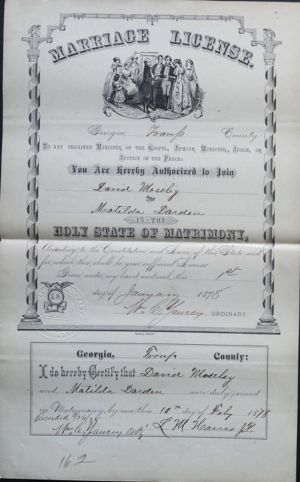 MARRIAGE LICENSE.
Georgia, Troup County
TO ANY ORDAINED MINISTER OF THE GOSPEL, JEWISH MINISTER, JUDGE, OR
JUSTICE OF THE PEACE:
You Are Hereby Authorized to Join
David Moseley
and
Matilda Darden
IN THE
HOLY STATE OF MATRIMONY,
According to the Constitution and Laws of this State, and
for which this shall be your sufficient License
Given under my hand and seal, this 1st
day of January 1878
ORDINARY.
Georgia, Troup County:
I do hereby Certify that David Moseley
and Matilda Darden were duly joined
in Matrimony by me, this 10th day of Feby 1878
Recorded
L. M. Harris J.P.
162